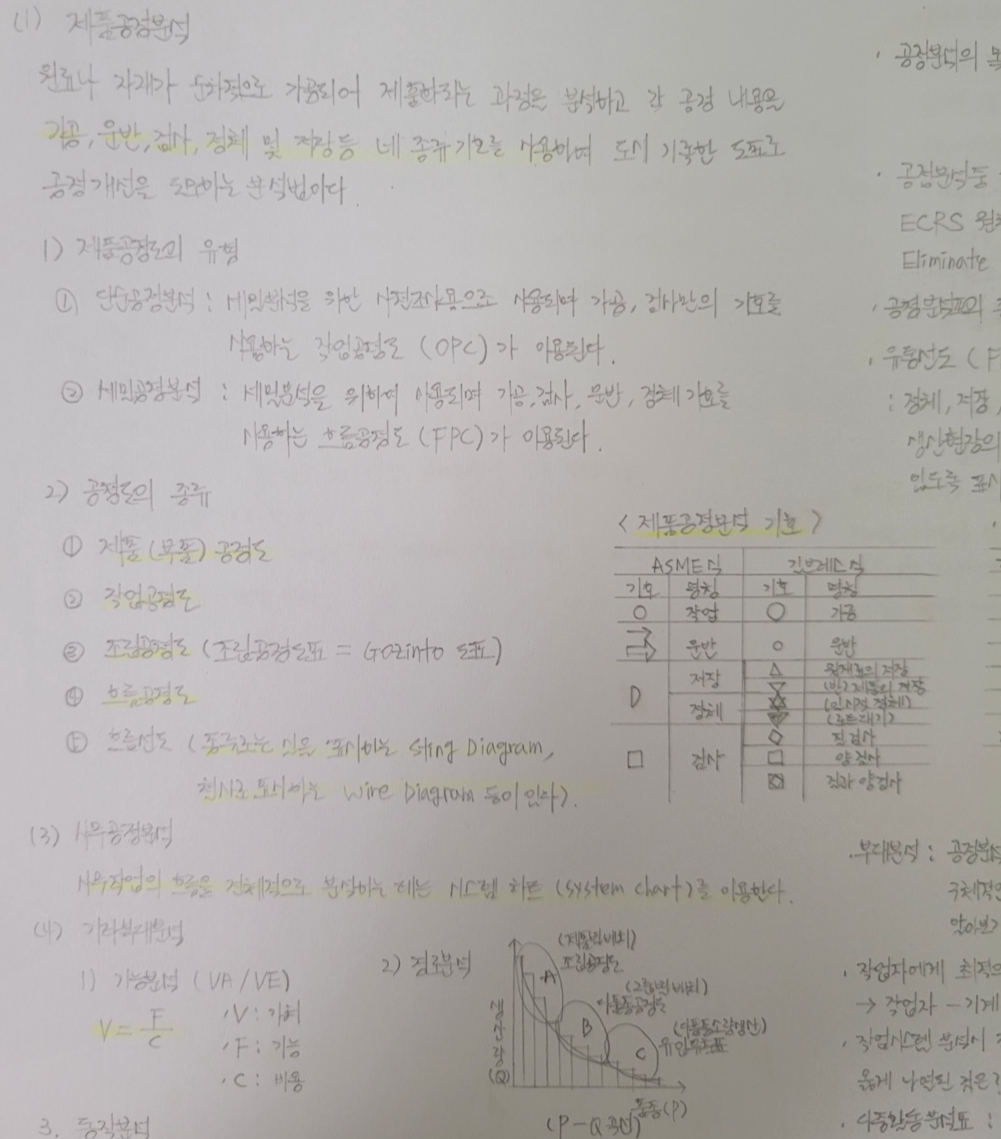 (1) 제품공정분석
원료나 자재가 순차적으로 가공되어 제품화되는 과정을 분석하고 각 공정 내용을
가공, 운반, 검사, 정체 및 저장등 네 종류기호를 사용하여 도시 기록한 도표로
공정개선을 도모하는 분석법이다.
1) 제품공정도의 유형
① 단순공정분석 : 세밀분석을 위한 사전조사용으로 사용되며 가공, 검사만의 기호를
사용하는 작업공정도 (OPC)가 이용된다.
② 세밀공정분석 : 세밀분석을 위하여 이용되며 가공, 검사, 운반, 정체기호를
사용하는 흐름공정도 (FPC)가 이용된다.
2) 공정도의 종류
① 제품(부품) 공정도
② 작업공정도
③ 조립공정도 (조립공정도표 = Gozinto 도표)
④ 흐름공정도
⑤ 흐름선도 ( 표시하는 sting Diagram,
철사로 표시하는 wire Diagram 등이 있다).
< 제품공정분석 기호 >
ASME식 길브레스식
기호 명칭 기호 명칭
○ 작업 ○ 가공
⇒ 운반 ○ 운반
D 저장 △ 원재료의 저장
▽ (반)제품의 저장
정체 (일시적 정체)
▽ (로트대기)
□ 검사 ◇ 질검사
□ 양검사
질과 양검사
(3) 사무공정분석
사무작업의 흐름을 전체적으로 분석하는 데는 시스템 차트 (system chart)를 이용한다.
(4) 기타부대분석
1) 기능분석 (VA/VE)
V = F/C
, V : 가치
, F : 기능
· C : 비용
2) 경로분석
(제품별배치)
조립공정도
(그룹별배치)
다품종공정도
유입유출표
A
B
C
생산량(Q)
품종(P)
(P-Q곡선)
3. 동작분석
· 공정분석의
· 공정분석중
ECRS
Eliminate
· 공정분석표의
· 유통선도 (F
: 정체, 저장,
생산현장의
있도록 표시
· 부대분석 : 공정분석
구체적인
알아보기
· 작업자에게 최적의
→ 작업자 - 기계
· 작업시스템 분석시
옳게 나열된 것은
· 다중활동분석표 :